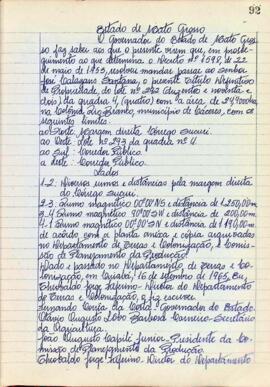 92
Estado de Mato Grosso
O Governador do Estado de Mato Gros
so faz saber aos que o presente virem que, em prosse
guimento ao que determina o Decreto Nº 1598, de 22
de maio de 1953, resolveu mandar passar ao senhor
José Calazans Santana, o presente Título Definitivo
de Propriedade, do lote nº 292 (duzentos e noventa e
dois) da quadra 4 (quatro) com a área de
na Colônia Rio Branco, município de Cáceres, com os
seguintes limites:
ao Norte Margem direita Córrego
ao Este Lote nº 293 da quadra nº 4.
ao Sul: Corredor Público
a oeste: Corredor Público.
Lados
1-2. Diversos rumos e distâncias pela margem direita
do Córrego
2-3. Rumo magnético 00º00'NS e distância de 1.250,00m.
3-4 Rumo magnético 90º00'SW e distância de 200,00m.
4-1 Rumo magnético 00º00'NS e distância de 1.190,00m
de acordo com a planta anexa e cópia arquivada
no Departamento de Terras e Colonização, e Comis
são de Planejamento da Produção.
Dado e passado no Departamento de Terras e Co-
lonização, em Cuiabá, 16 de setembro de 1965. Eu,
Thiobaldo Jorge, Diretor do Departamento
de Terras e Colonização, o fiz escrever
Fernando Corrêa da Costa - Governador do Estado
Augusto Lobo Barbosa Carneiro - Secretário
da Agricultura.
João Augusto Capilé Junior, Presidente da Co-
missão de Planejamento da Produção.
Thiobaldo Jorge - Diretor do Departamento